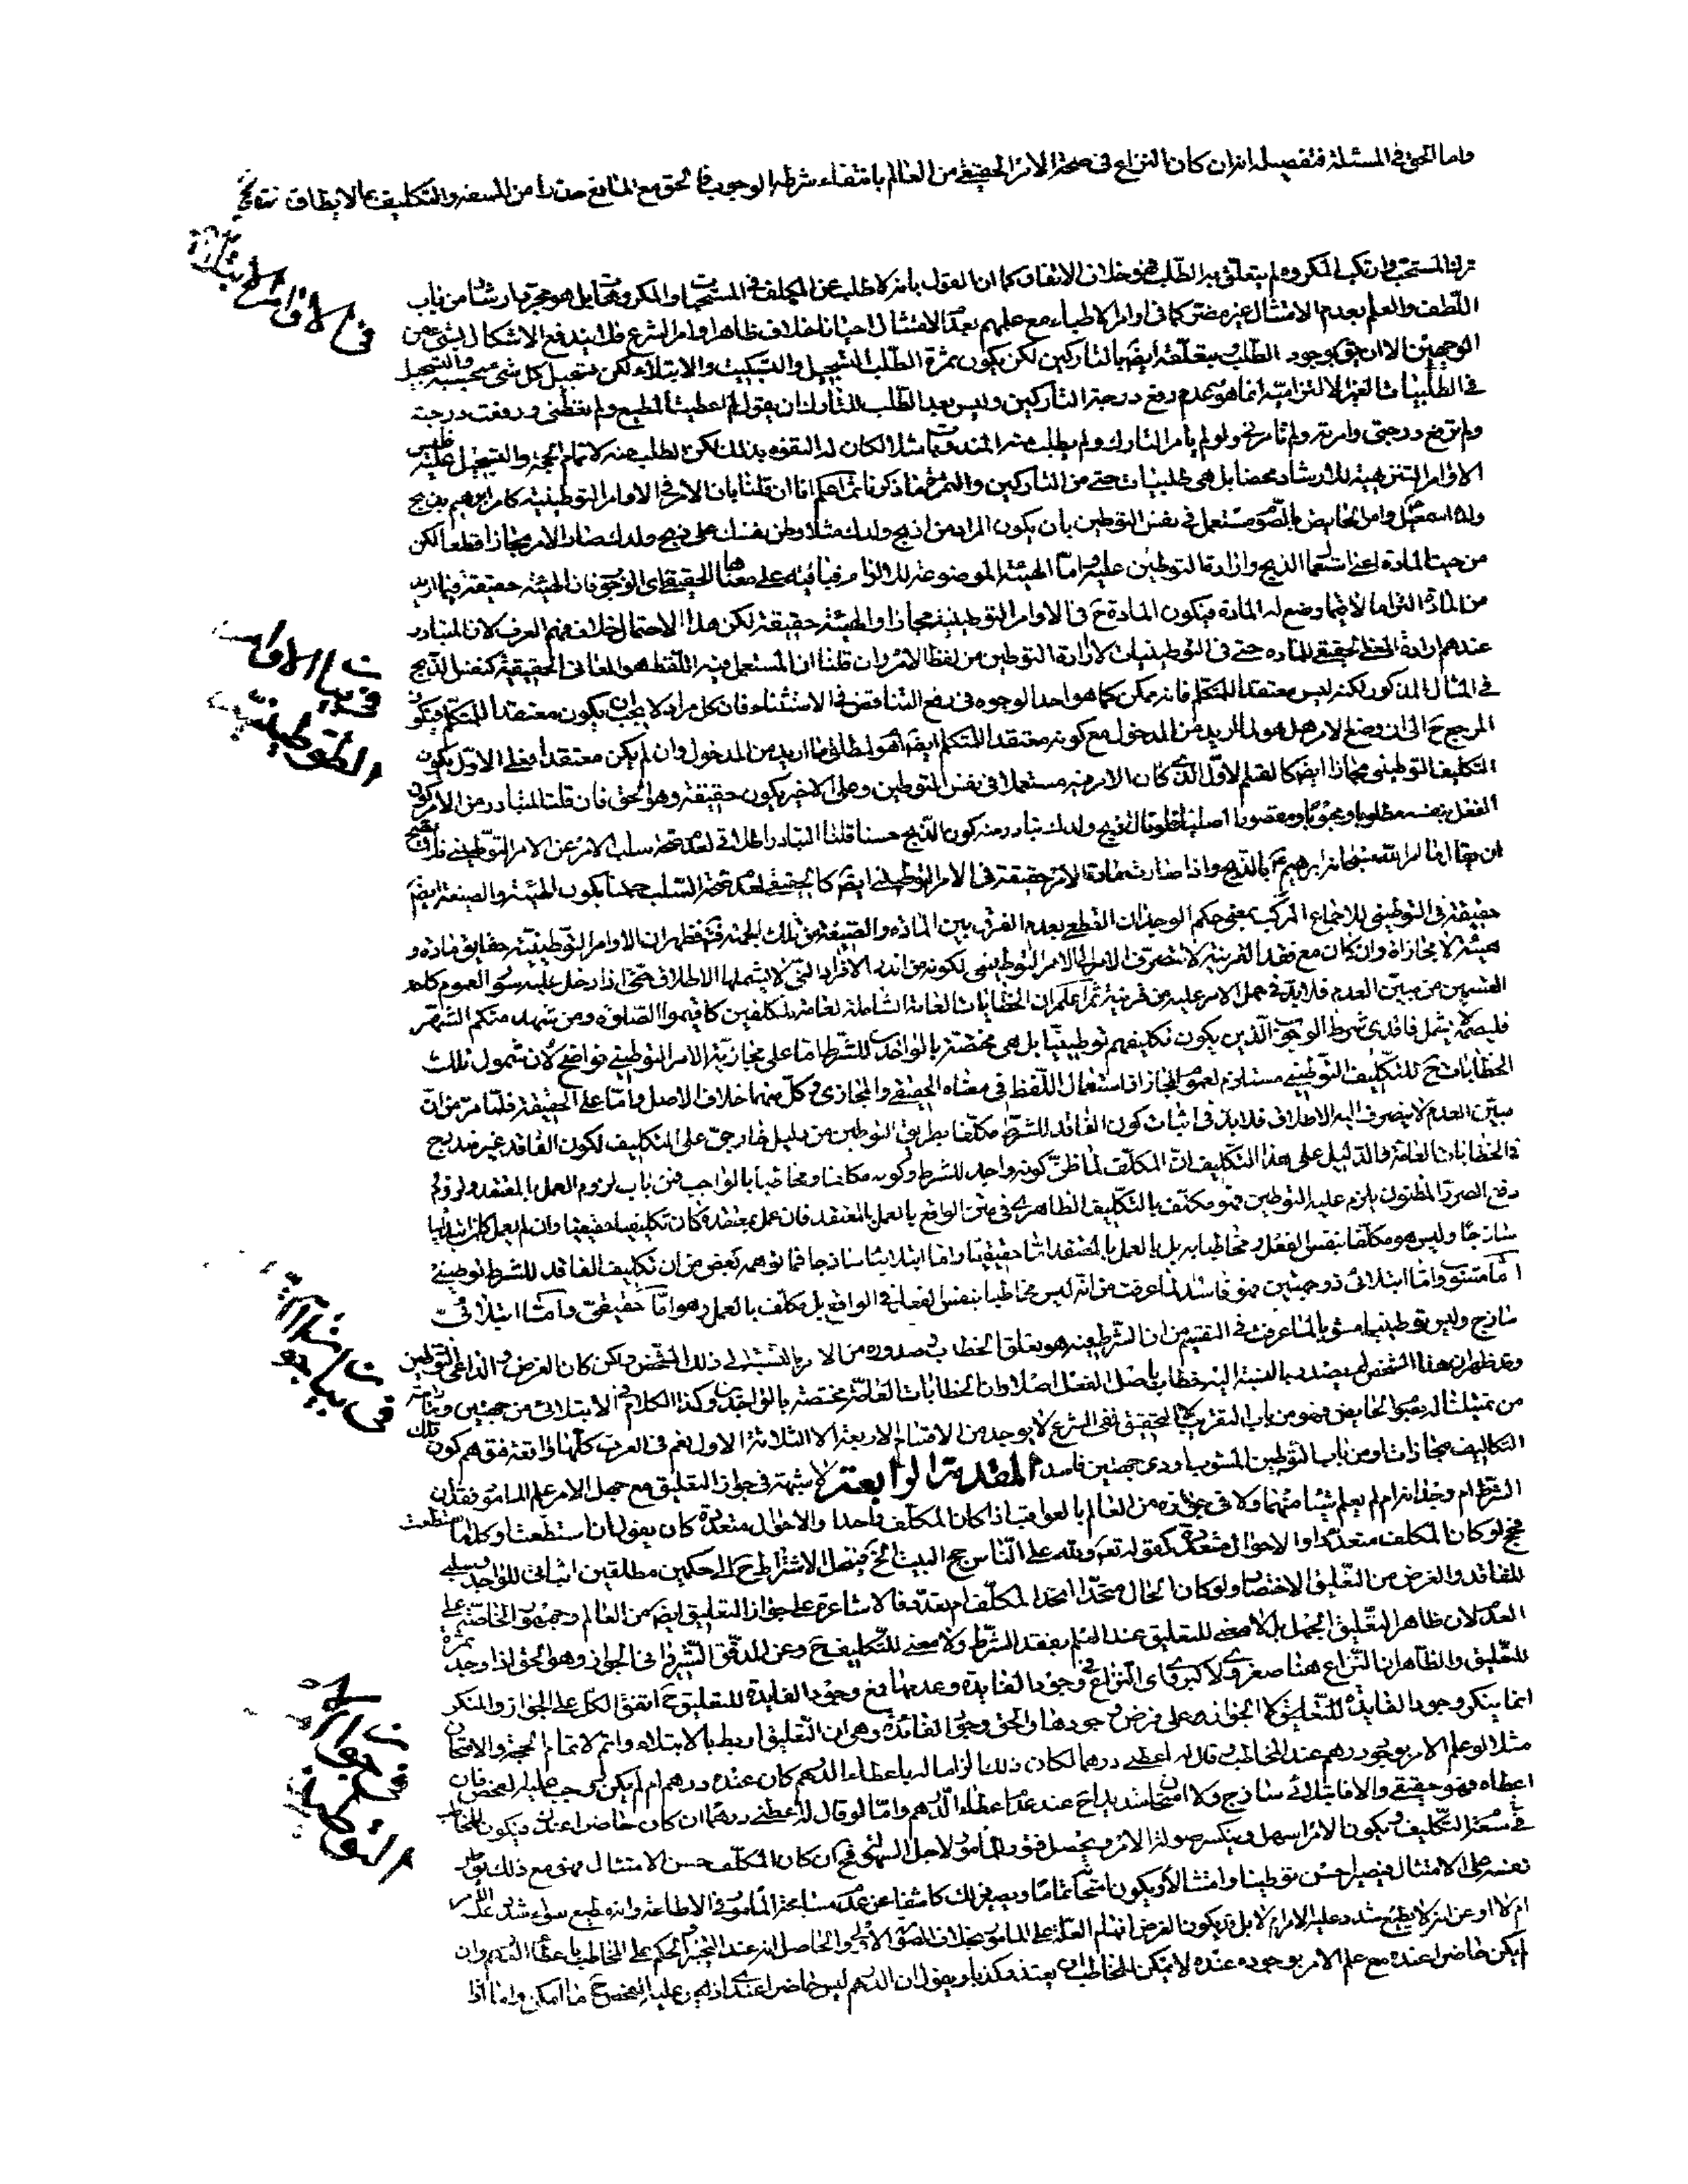 واما الحق فى المسئلة فتفصيله انه ان كان النزاع فى صحة الامر الحقيقى من العالم بانتفاء شرط الوجوب فالحق مع المانع حذرا من السفه والتكليف بما لا يطاق
ترك المستحب وارتكب المكروه لم يتعلق به الطلب فهو خلاف الاتفاق كما ان القول بانه لا طلب عن المكلف فى المستحبات والمكروهات بل هو مجرد ارشاد من باب
اللطف والعلم بعدم الامتثال غير مضر كما فى اوامر الاطباء مع علمهم بعدم الامتثال احيانا خلاف ظاهر اوامر الشرع فلا يندفع الاشكال بشئ من
الوجهين الا ان يق بوجود الطلب وبتعلقه ايضا بالتاركين لكن يكون ثمرة الطلب التسجيل والتبكيت والابتلاء لكن تسجيل كل شئ بحسبه والتسجيل
فى الطلبيات الغير الالتزامية انما هو عدم رفع درجة التاركين وليس بعد الطلب للتارك ان يقول لم اعطيت المطيع ولم تعطنى ورفعت درجته
ولم ترفع درجتى وامرته ولم تامرنى ولو لم يامر التارك ولم يطلب منه المندوبات مثلا لكان له التفوه بذلك لكن الطلب عنه لاتمام الحجة والتسجيل عليه فليس
الاوامر التنزيهية للارشاد محضا بل هى طلبيات حتى من التاركين والثمرة ما ذكرنا ثم اعلم انا ان قلنا بان الامر فى الاوامر التوطينية كامر ابراهيم بذبح
ولده اسمعيل وامر الحايض بالصوم مستعمل فى نفس التوطين بان يكون المراد من اذبح ولدك مثلا وطن نفسك على ذبح ولدك صار الامر مجازا قطعا لكن
من حيث المادة اعنى استعمال الذبح وارادة التوطين عليه واما الهيئة الموضوعة للالزام فباقية على معناها الحقيقى اى الوجوب فان الهيئة حقيقة فيما اريد
من المادة التزاما لا فيما وضع له المادة فيكون المادة ح فى الاوامر التوطينية مجازا والهيئة حقيقة لكن هذا الاحتمال خلاف فهم العرف لان المتبادر
عندهم ارادة المعنى الحقيقى للمادة حتى فى التوطينيات لا ارادة التوطين من لفظ الامر وان قلنا ان المستعمل فيه اللفظ هو المعانى الحقيقية كنفس الذبح
فى المثال المذكور لكنه ليس معتقدا للمتكلم فانه ممكن كما هو احد الوجوه فى دفع التناقض فى الاستثناء فان كل مراد لا يجب ان يكون معتقدا للمتكلم فيكون
المرجع ح الى ان وضع الامر هل هو لما اريد من المدخول مع كونه معتقدا للمتكلم ايضا ام هو لمطلق ما اريد من المدخول وان لم يكن معتقدا فعلى الاول يكون
التكليف التوطينى مجازا ايضا كالقسم الاول الذى كان الامر فيه مستعملا فى نفس التوطين وعلى الاخير يكون حقيقة وهو الحق فان قلت المتبادر من الامر كون
الفعل بنفسه مطلوبا ومحبوبا ومقصودا اصليا فلو قال اذبح ولدك تبادر منه كون الذبح حسنا قلنا التبادر اطلاقى لعدم صحة سلب الامر عن الامر التوطينى
ان يقال ما امر الله سبحانه ابراهيم ع بالذبح واذا صارت مادة الامر حقيقة فى الامر التوطينى ايضا كالحقيقى لعدم صحة السلب حكمنا بكون الهيئة والصيغة ايضا
حقيقة فى التوطينى للاجماع المركب بمعنى حكم الوجدان القطعى بعدم الفرق بين المادة والصيغة من تلك الجهة فظهر ان الاوامر التوطينية حقايق مادة و
هيئة لا مجازات وان كان مع فقد القرينة لا ينصرف الامر الى الامر التوطينى لكونه من اندر الافراد التى لا يشملها الاطلاق حتى اذا دخل عليه سور العموم
القسمين من مبين العدم فلا بد فى حمل الامر عليه من قرينة ثم اعلم ان الخطابات العامة الشاملة لعامة المكلفين كاقيموا الصلوة ومن شهد منكم الشهر
فليصمه لا يشمل فاقدى شرط الوجوب الذين يكون تكليفهم توطينيا بل هى مختصة بالواجدين للشرط اما على مجازية الامر التوطينى فواضح لان شمول تلك
الخطابات ح للتكليف التوطينى مستلزم لعموم المجاز او استعمال اللفظ فى معناه الحقيقى والمجازى وكل منهما خلاف الاصل واما على الحقيقة فلما مر من ان
مبين العدم لا ينصرف اليه الاطلاق فلا بد فى اثبات كون الفاقد للشرط مكلفا بطريق التوطين من دليل خارجى على التكليف لكون الفاقد غير مندرج
فى الخطابات العامة والدليل على هذا التكليف ان المكلف لما ظن كونه واجد للشرط وكونه مكلفا ومخاطبا بالواجب فمن باب لزوم العمل بالمعتقد ولزوم
دفع الضرر المظنون يلزم عليه التوطين فهو مكلف بالتكليف الظاهرى فى متن الواقع بالعمل بالمعتقد فان عمل بمعتقده كان تكليفا حقيقيا وان لم يعمل كان ابتلائيا
ساذجا وليس هو مكلفا بنفس الفعل ومخاطبا به بل بالعمل بالمعتقد اما حقيقيا واما ابتلائيا ساذجا فما توهمه بعض من ان تكليف الفاقد للشرط توطينى
اما مشوب واما ابتلائى ذو جهتين فهو فاسد لما عرفت من انه ليس مخاطبا بنفس الفعل فى الواقع بل مكلف بالعمل وهو اما حقيقى واما ابتلائى
ساذج وليس توطينيا مشوبا لما عرفت فى التقسيم من ان الشرط فيه هو تعلق الخطاب وصدوره من الامر بالنسبة الى ذلك الشخص ولكن كان الغرض والداعى التوطين
وقد ظهر ان هذا الشخص لم يصدر بالنسبة اليه خطاب باصل الفعل اصلا وان الخطابات العامة مختصة بالواجدين وكذا الكلام فى الابتلائى من جهتين
من تمثيلنا له بصوم الحايض فهو من باب التقريب لا التحقيق ففى الشرع لا يوجد من الاقسام الاربعة الا الثلاثة الاول نعم فى العرف كلها واقعة فتوهم كون تلك
التكاليف مجازات او من باب التوطين المشوب او ذى جهتين فاسد المقدمة الرابعة لا شبهة فى جواز التعليق مع جهل الامر علم المامور فقدان
الشرط ام وجدانه ام لم يعلم شيئا منهما ولا فى جوازه من العالم بالعواقب اذا كان المكلف واحدا والاحوال متعددة كان يقول ان استطعت او كلما استطعت
فحج او كان المكلف متعددا والاحوال متعددة كقوله تعم ولله على الناس حج البيت الخ فينحل الاشتراط ح الى حكمين مطلقين اثباتى للواجد وسلبى
للفاقد والغرض من التعليق الاختصار ولو كان الحال متحدا اتحد المكلف ام تعدد فالاشاعرة على جواز التعليق ايضا من العالم وجمهور الخاصة على
العدم لان ظاهر التعليق الجهل بل لا معنى للتعليق عند العلم بفقد الشرط ولا معنى للتكليف ح وعن المدقق الشيروانى الجواز وهو الحق اذا وجد ثمرة
للتعليق والظاهر ان النزاع هنا صغروى لا كبروى اى النزاع فى وجود الفايدة وعدمها فمع وجود الفايدة للتعليق ح اتفق الكل على الجواز والمنكر
انما ينكر وجود الفايدة للتعليق لا الجواز على فرض وجودها والحق وجود الفائدة وهى ان التعليق اربط بالابتلاء واتم لاتمام الحجة والامتحان
مثلا لو علم الامر بوجود درهم عند المخاطب قال له اعطنى درهما لكان ذلك الزاما له باعطاء الدرهم كان عنده درهم ام لم يكن فيجب عليه الفحص فان
اعطاه فهو حقيقى والا فابتلائى ساذج ولا امتحان شديد ح عند عدم اعطاء الدرهم واما لو قال له اعطنى درهما ان كان حاضرا عندك فيكون المخاطب
فى سعة التكليف ويكون الامر اسهل وينكسر صولة الامر فيحصل فتور المامور لاجل السهولة فح ان كان المكلف حسن الامتثال فهو مع ذلك يوطن
نفسه على الامتثال فيصير احسن توطينا وامتثالا ويكون امتحانا تاما ويصير ذلك كاشفا عن عدم مسامحة المامور فى الاطاعة وانه مطيع سواء شدد عليه الامر
ام لا او عن انه لا يطيع شدد عليه الامر ام لا بل قد يكون الغرض اتمام الحجة على المامور بخلاف الصورة الاولى والحاصل انه عند تنجيز الحكم على المخاطب باعطاء الدرهم وان
لم يكن حاضرا عنده مع علم الامر بوجوده عنده لا يتمكن المخاطب ان يعتذر كذبا ويقول ان الدرهم ليس حاضرا عندى اذ يجب عليه الفحص ح ما امكن واما اذا
فى بيان الاوامر
التوطينية
فى بيان
فى جواز
التوطينية